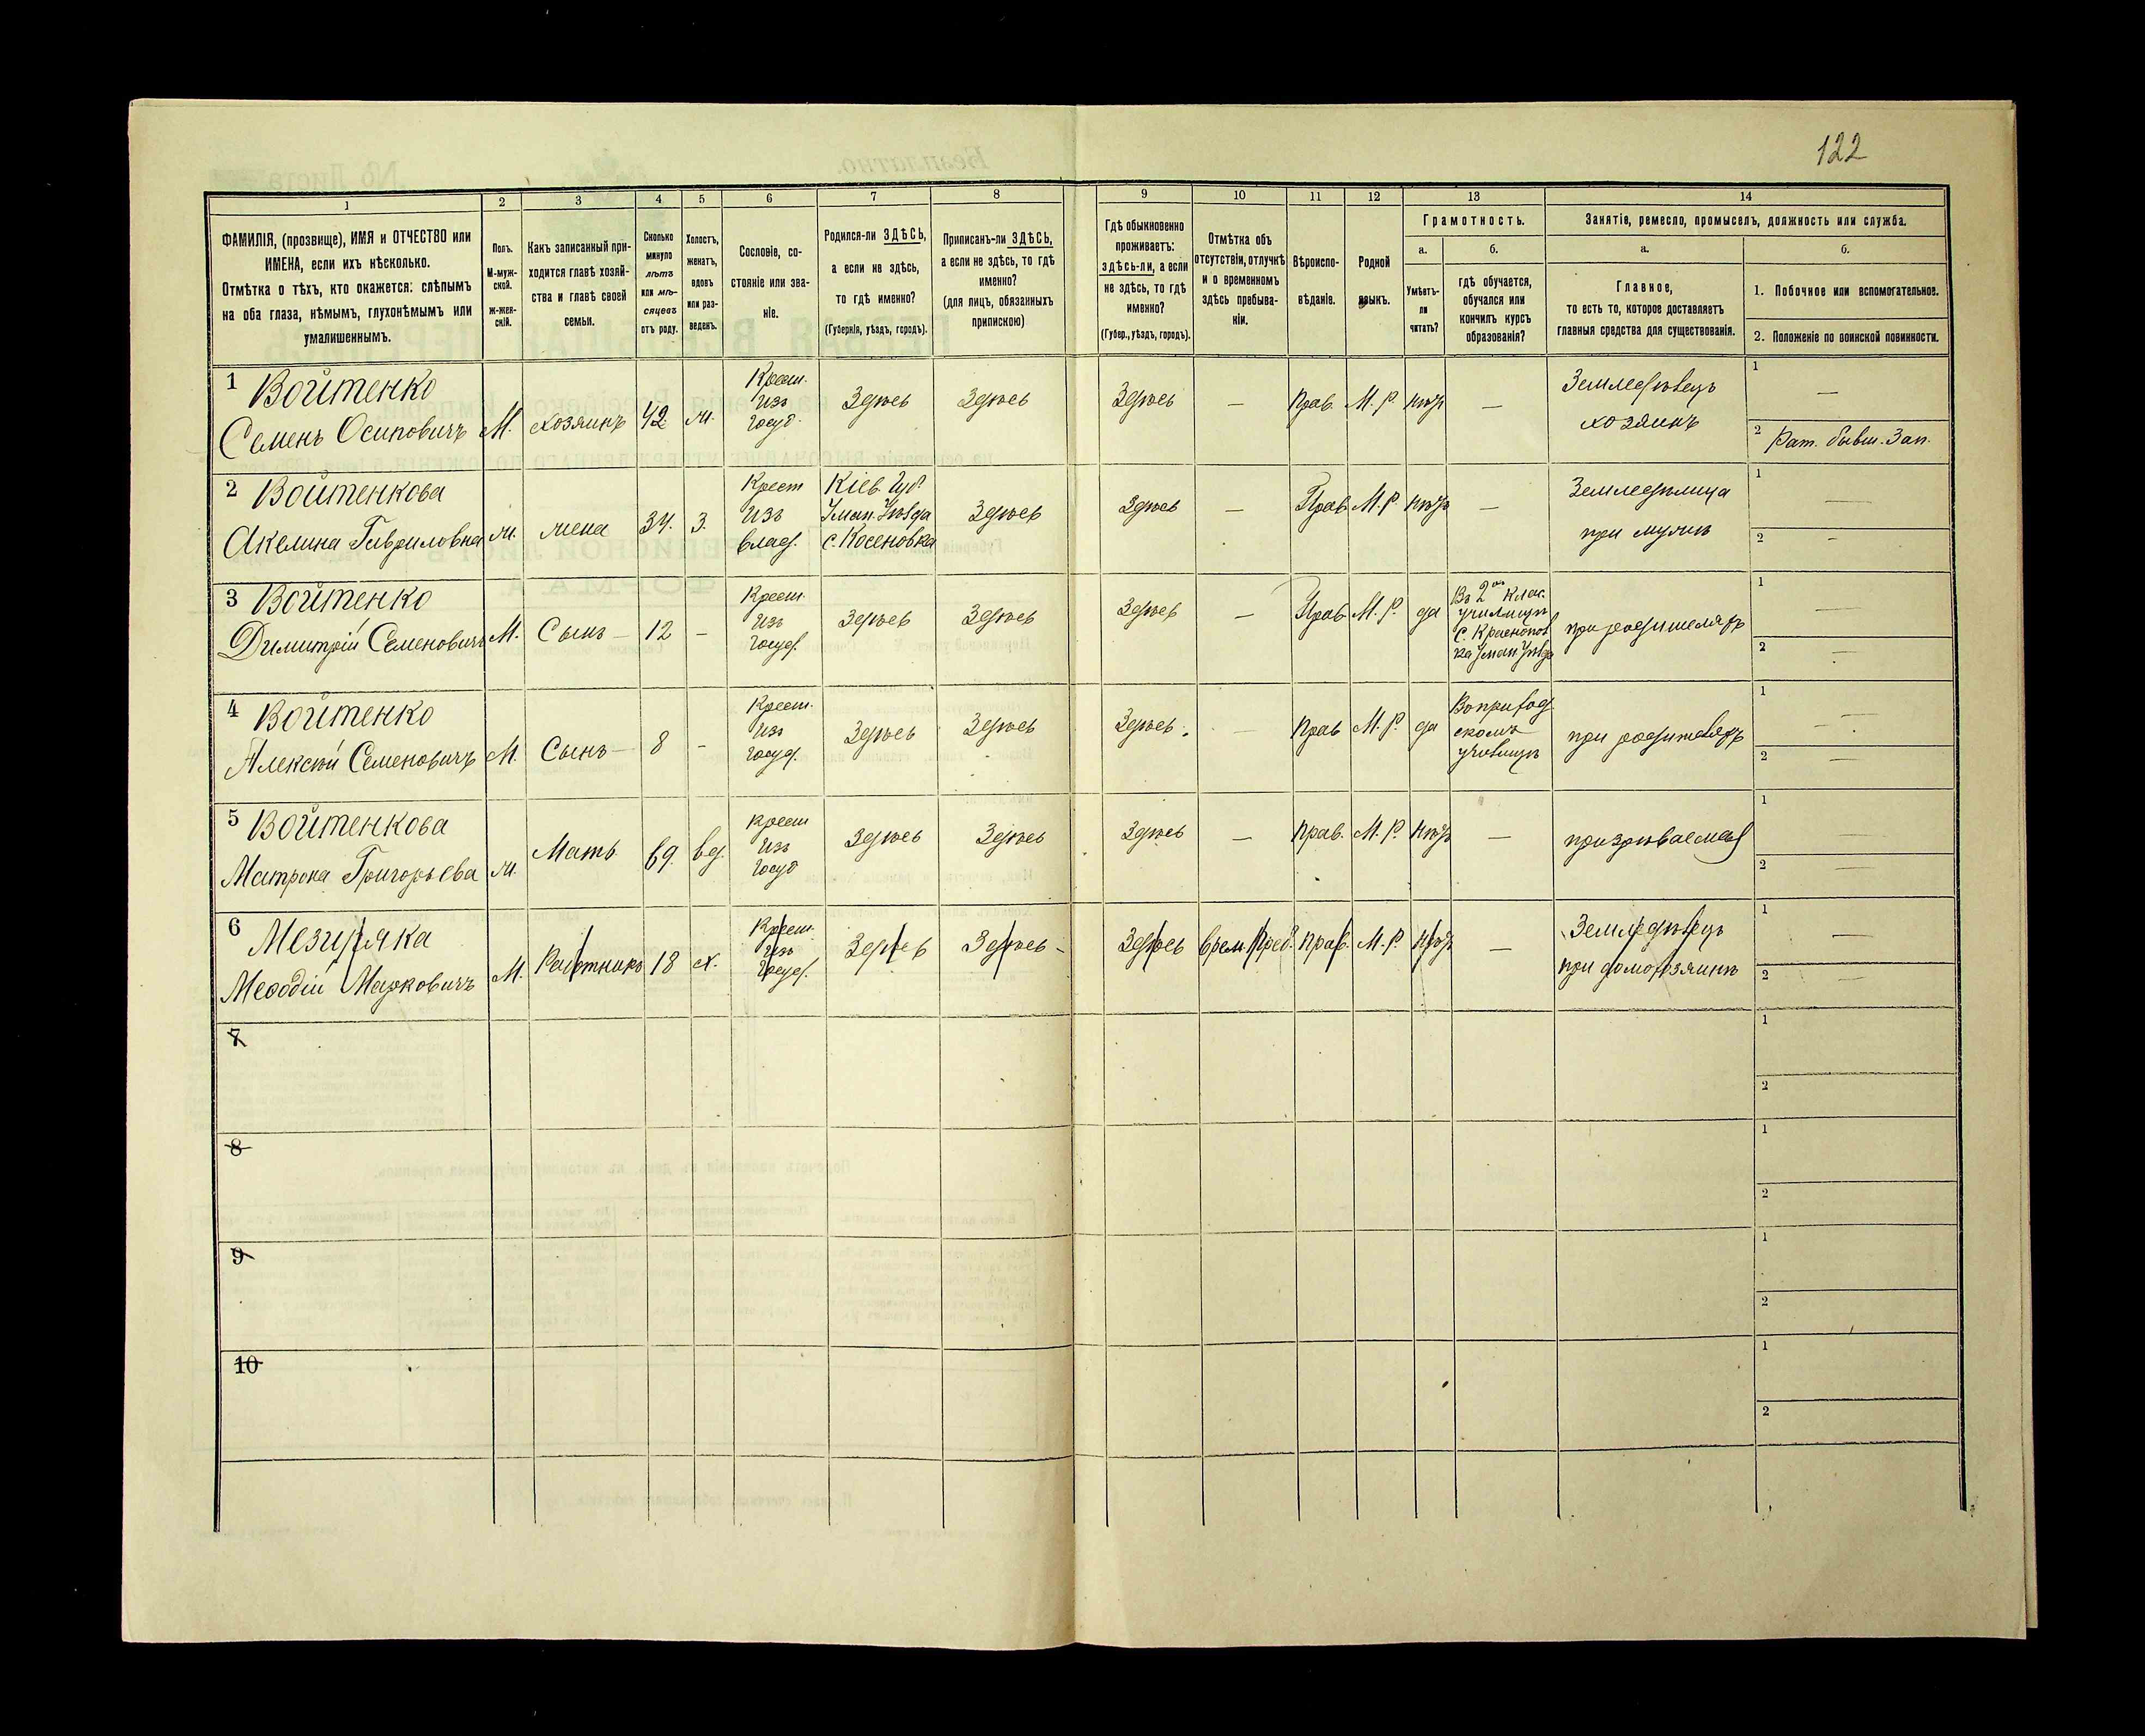 122
1
2
3
4
5
6
7
8
9
10
11
12
13
14
ФАМИЛІЯ, (прозвище), ИМЯ и ОТЧЕСТВО или
ИМЕНА, если ихъ нѣсколько.
Отмѣтка о тѣхъ, кто окажется: слѣпымъ
на оба глаза, нѣмымъ, глухонѣмымъ или
умалишеннымъ.
Полъ.
М-муж-
ской.
Ж-жен-
скій.
Какъ записанный при-
ходится главѣ хозяй-
ства и главѣ своей
семьи.
Сколько
минуло
лѣтъ
или мѣ-
сяцевъ
отъ роду.
Холостъ,
женатъ,
вдовъ
или раз-
веденъ.
Сословіе, со-
стояніе или зва-
ніе.
Родился-ли ЗДѢСЬ,
а если не здѣсь,
то гдѣ именно?
(Губернія, уѣздъ, городъ).
Приписанъ-ли ЗДѢСЬ,
а если не здѣсь, то гдѣ
именно?
(для лицъ, обязанныхъ
припискою)
Гдѣ обыкновенно
проживаетъ:
здѣсь-ли, а если
не здѣсь, то гдѣ
именно?
(Губер., уѣздъ, городъ).
Отмѣтка объ
отсутствіи, отлучкѣ
и о временномъ
здѣсь пребыва-
ніи.
Вѣроиспо-
вѣданіе.
Родной
языкъ.
Грамотность.
а.
Умѣетъ-
ли
читать?
б.
гдѣ обучается,
обучался или
кончилъ курсъ
образованія?
Занятіе, ремесло, промыселъ, должность или служба.
а.
Главное,
то есть то, которое доставляетъ
главныя средства для существованія.
б.
1. Побочное или вспомогательное.
2. Положеніе по воинской повинности.
1 Войтенко
Семенъ Осиповичъ
М.
хозяинъ
42
ж.
Крест.
изъ
госуд.
Здѣсь
Здѣсь
Здѣсь
—
Прав.
М. Р.
нѣтъ
—
Земледѣлецъ
хозяинъ
1 —
2 Рат. бывш. Зап.
2 Войтенкова
Акелина Гавриловна
ж.
жена
34.
З.
Крест
изъ
влад.
Кіев. Губ.
Уман. Уѣзда
с. Косеновка
Здѣсь
Здѣсь
—
Прав
М. Р.
нѣтъ
—
Земледѣлица
при мужѣ
1 —
2 —
3 Войтенко
Димитрій Семеновичъ
М.
Сынъ —
12
—
Крест.
изъ
госуд.
Здѣсь
Здѣсь
Здѣсь
—
Прав
М. Р.
да
Въ 2хъ клас.
училищѣ
с. Краснопол
ка Уман. Уѣзда
при родителяхъ
1 —
2 —
4 Войтенко
Алексѣй Семеновичъ
М.
Сынъ —
8
—
Крест.
изъ
госуд.
Здѣсь
Здѣсь
Здѣсь.
—
Прав
М. Р.
да
училищѣ
при родителяхъ
1 —
2 —
5 Войтенкова
Матрона Григорьева
ж.
Мать
69.
вд.
Крест
изъ
госуд
Здѣсь
Здѣсь
Здѣсь
—
Прав.
М. Р.
нѣтъ
—
призрѣваемая
1 —
2 —
6 Мезиряка
Меѳодій Марковичъ
М.
Работникъ
18
х.
Крест.
изъ
госуд.
Здѣсь
Здѣсь —
Здѣсь
Врем. Преб.
Прав.
М. Р.
нѣтъ
—
Земледѣлецъ
при домохозяинѣ
1 —
2 —
7
1
2
8
1
2
9
1
2
10
1
2